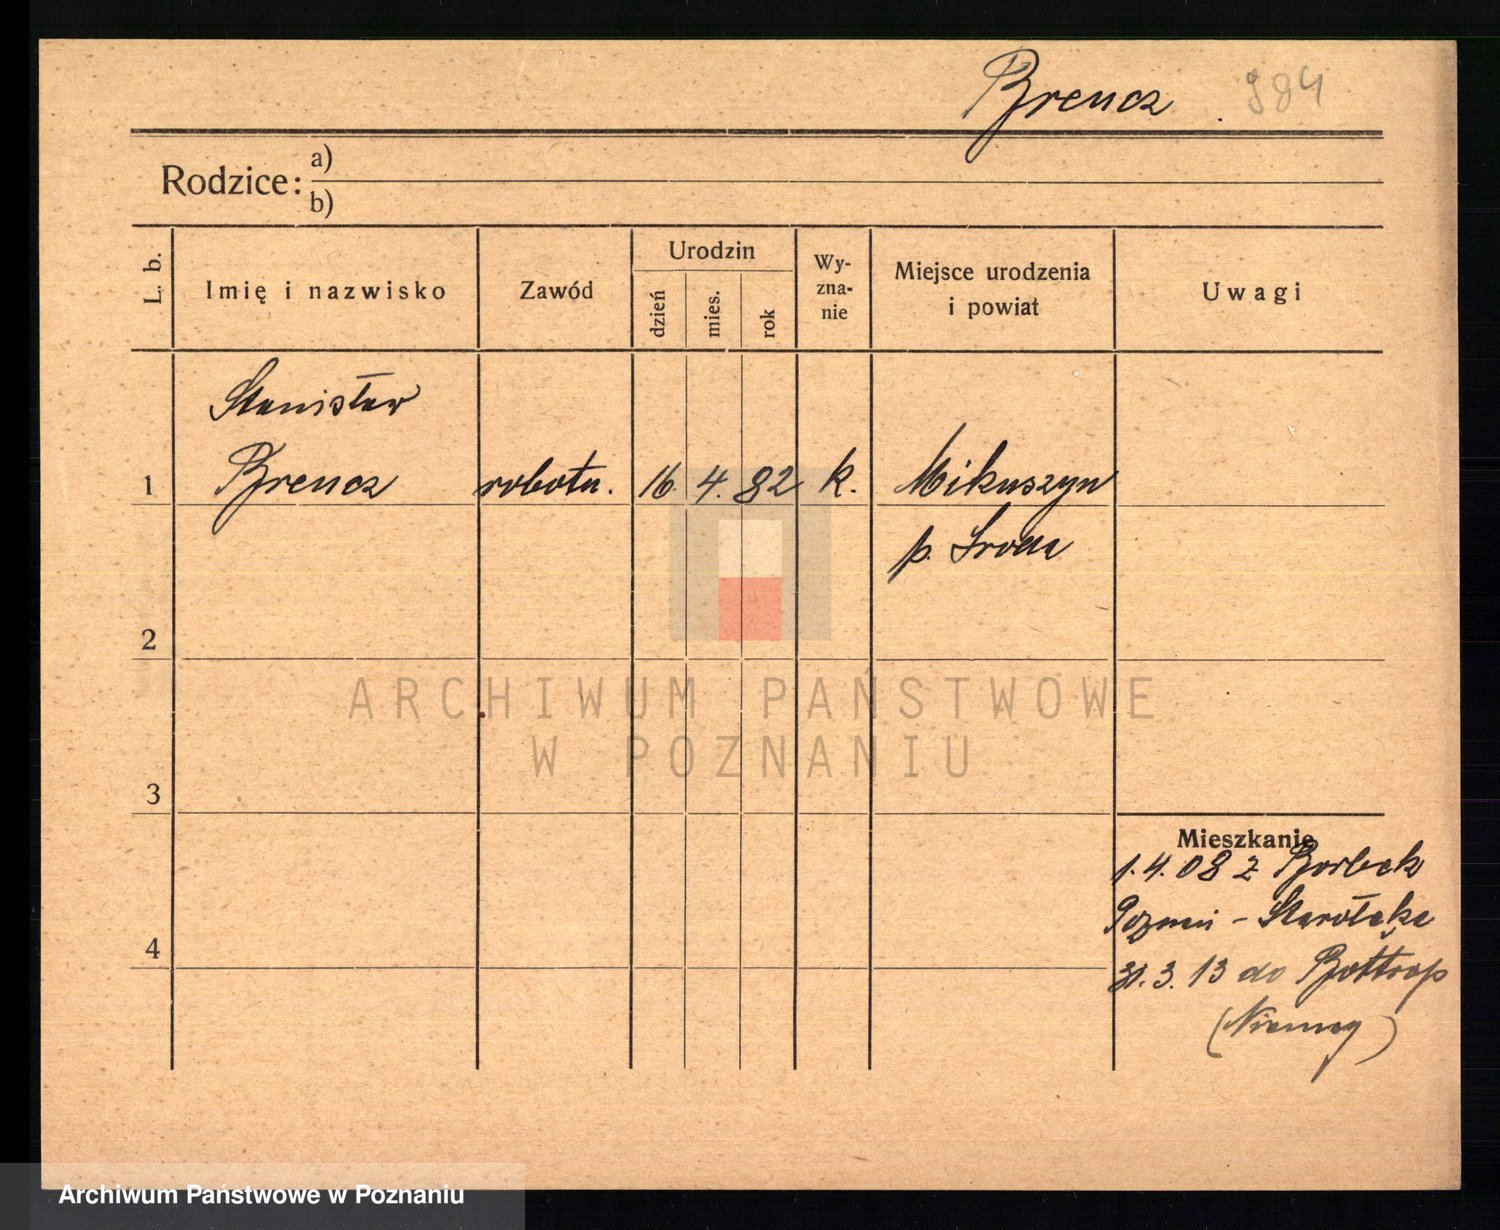 Brencz 984
Rodzice:
a)
b)
L. b.
Imię i nazwisko
Zawód
Urodzin
dzień
mies.
rok
Wy-
zna-
nie
Miejsce urodzenia
i powiat
Uwagi
Stanisław
1 Brencz robotn. 16. 4. 82 k. Mikuszyn
p. Środa
2
3
4
Mieszkanie
1.4.08 z Borbek
Poznań - Starołęka
31.3.13 do Bottrop
(Niemcy)
ARCHIWUM PAŃSTWOWE
W POZNANIU
Archiwum Państwowe w Poznaniu